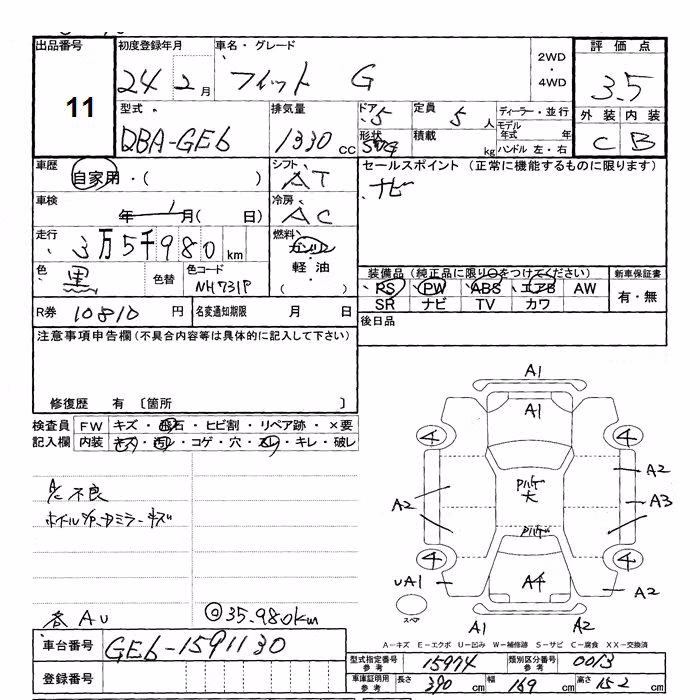 出品番号
11
初度登録年月
24 2 月
車名・グレード
フィット G
2WD
・
4WD
評価点
3.5
外装 内装
C B
型式
DBA-GE6
排気量
1330 cc
ドア 5
形状
定員 5 人
積載 kg
ディーラー・並行
モデル年式 年
ハンドル 左・右
車歴
自家用・( )
シフト
AT
セールスポイント (正常に機能するものに限ります)
ナビ
車検
年 月( 日)
冷房
AC
走行
3万5千980 km
燃料
ガソリン
・
軽油
( )
色
黒
色替
色コード
NH731P
装備品 (純正品に限り○をつけてください)
PS PW ABS エアB AW
SR ナビ TV カワ
新車保証書
有・無
R券 10810 円
名変通知期限 月 日
後日品
注意事項申告欄(不具合内容等は具体的に記入して下さい)
修復歴 有 〔箇所 〕
検査員記入欄
FW キズ・飛石・ヒビ割・リペア跡・×要
内装 キズ・汚レ・コゲ・穴・スレ・キレ・破レ
A/C 不良
各AU
◎35.980km
A1
A1
4
4
A2
A2
A3
大
4
4
UA1
A4
A2
スペア
A1
A2
A-キズ E-エクボ U-凹み W-補修跡 S-サビ C-腐食 XX-交換済
車台番号 GE6-1591130
登録番号
型式指定番号 参考 15974
類別区分番号 参考 0013
車庫証明用 参考
長さ 390 cm
幅 169 cm
高さ 152 cm